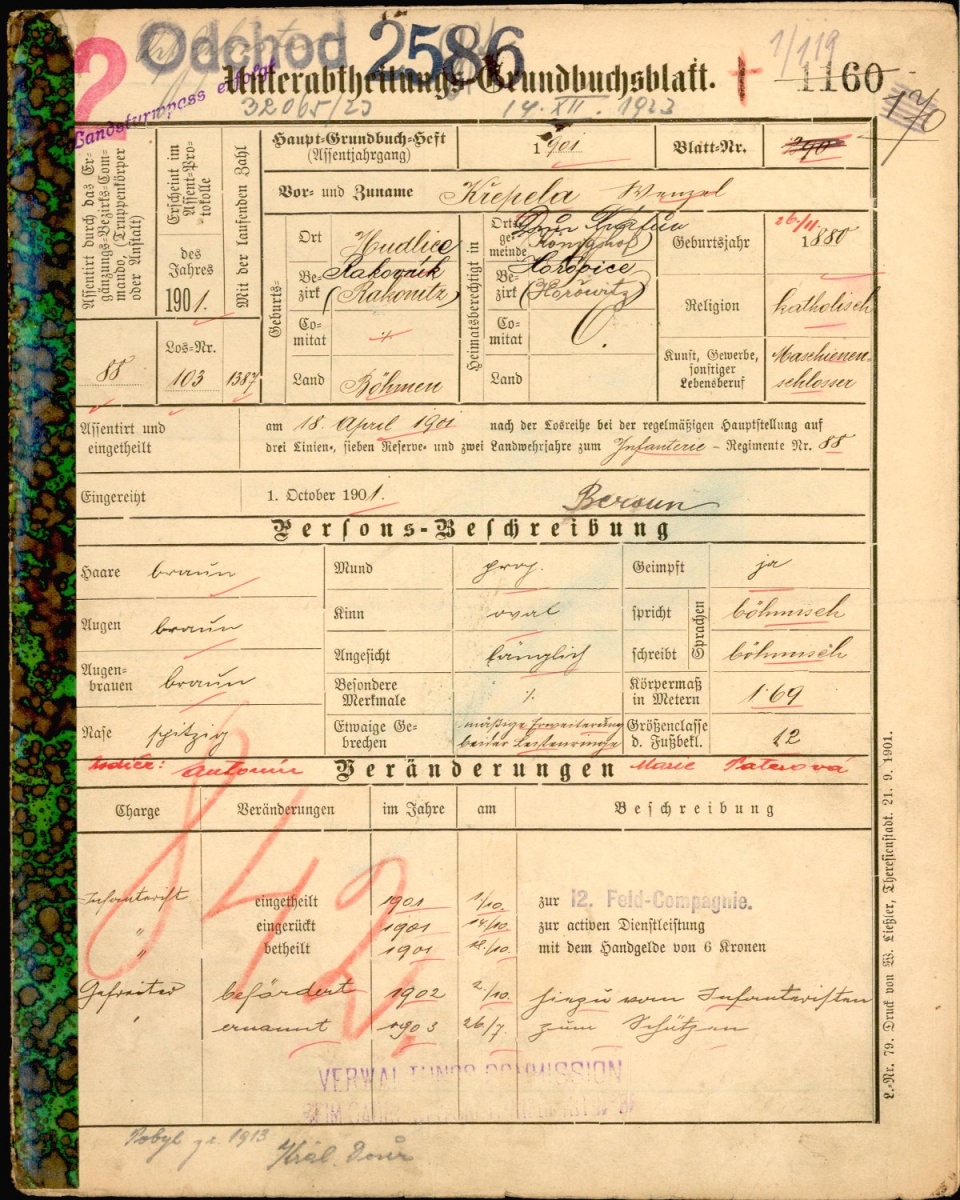 Odchod 2586
1/119
2
Unterabtheilungs-Grundbuchsblatt. † 1160
Landsturmpass erfolgt
32065/23 14. XII. 1923
170
Assentirt durch das Ergänzungs-Bezirks-Commando, (Truppenkörper oder Anstalt)
88
Erscheint im Assent-Protokolle
des Jahres
1901.
Los-Nr.
103
Mit der laufenden Zahl
1387
Haupt-Grundbuch-Heft
(Assentjahrgang)
1901
Blatt-Nr.
290
Vor- und Zuname Křepela Wenzel
Geburts-
Ort Hudlice
Bezirk Rakovník
(Rakonitz)
Comitat
Land Böhmen
Heimatsberechtigt in
Ortsgemeinde
(Königshof)
Bezirk Hořovice
(Hořowitz)
Comitat
Land
Geburtsjahr 26/11 1880
Religion katholisch
Kunst, Gewerbe, sonstiger Lebensberuf
Maschienenschlosser
Assentirt und
eingetheilt
am 18. April 1901 nach der Losreihe bei der regelmäßigen Hauptstellung auf
drei Linien-, sieben Reserve- und zwei Landwehrjahre zum Infanterie - Regimente Nr. 88
Eingereiht 1. October 1901. Beroun
Persons-Beschreibung
Haare braun
Augen braun
Augenbrauen braun
Nase spitzig
Mund prop.
Kinn oval
Angesicht länglich
Besondere
Merkmale
Etwaige Gebrechen
mäßige Erweiterung
beider Leistenringe
Geimpft ja
Sprachen
spricht böhmisch
schreibt böhmisch
Körpermaß
in Metern 1·69
Größenclasse
d. Fußbekl. 12
Rodiče: Antonín Veränderungen Marie Paterová
Charge Veränderungen im Jahre am Beschreibung
842
Infanterist eingetheilt 1901 1/10. zur 12. Feld-Compagnie.
„ eingerückt 1901 14/10. zur activen Dienstleistung
„ betheilt 1901 18./10. mit dem Handgelde von 6 Kronen
Gefreiter befördert 1902 2./10. hiezu vom Infanteristen
„ ernannt 1903 26/7. zum Schützen
VERWALTUNGS-COMMISSION
Pobyl 1913
Král. Dvůr
L.-Nr. 79. Druck von W. Ließler, Theresienstadt. 21. 9. 1901.